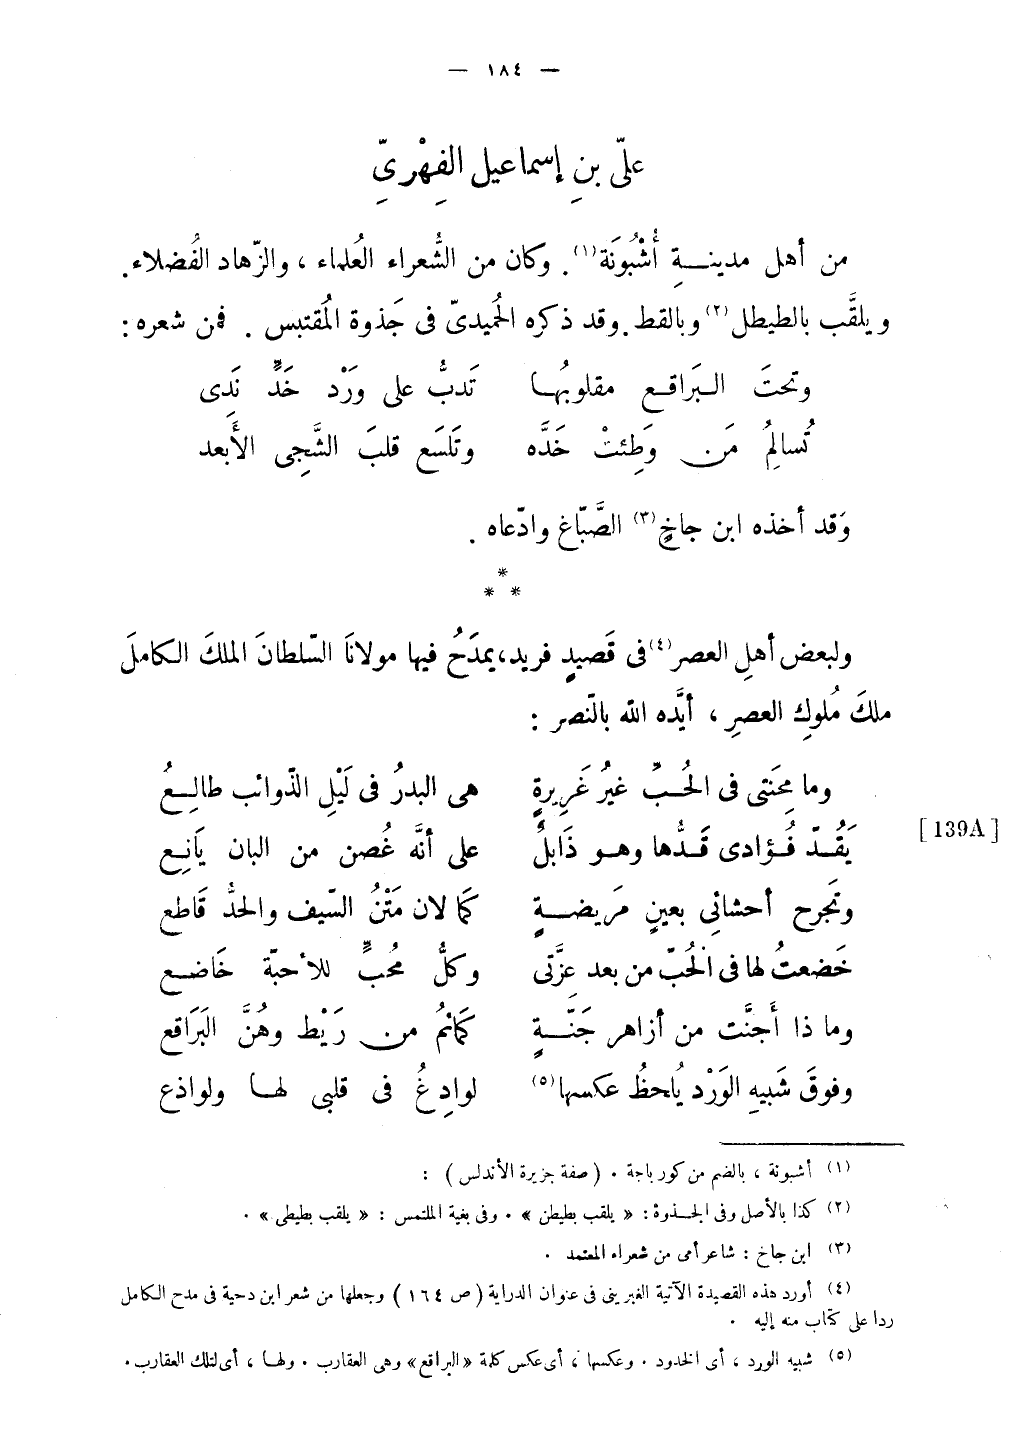 — ١٨٤ —
علىّ بنِ إسماعيل الفِهْرىِّ
من أهل مدينـــةِ أُشْبُونَة(١). وكان من الشُّعراء العُلماء ، والزّهاد الفُضلاء.
ويلقَّب بالطيطل(٢) وبالقط. وقد ذكره الحُميدىّ فى جَذوة المُقتبس . فمن شعره :
وتحتَ الـبَراقـع مقلوبُهـا تَدبُّ على وَرْد خَدٍّ نَدِى
تُسالِمُ مَن وَطِئتْ خَدَّه وتَلسَع قلبَ الشَّجِى الأَبعد
وَقد أخذه ابن جاخٍ(٣) الصَّبّاغ وادّعاه .
*
* *
ولبعض أهلِ العصر(٤) فى قَصيدٍ فريد، يمدَحُ فيها مولانَا السّلطانَ الملكَ الكاملَ
ملكَ مُلوكِ العصرِ ، أيَّده الله بالنّصر :
وما مِحنَتى فى الحُـبِّ غيرُ غَرِيرةٍ هى البدرُ فى لَيْلِ الذّوائب طالِـعُ
يَقُـدّ فُـؤادى قَـدُّها وهـو ذَابلٌ على أنَّه غُصن من البان يَانِـع
[ 139A ]
وتَجرح أحشائِى بعينٍ مَريضـــةٍ كمَا لان مَتْنُ السّيف والحدُّ قَاطع
خَضعتُ لها فى الحُبّ من بعد عِزَّتى وكلُّ مُحبٍّ للأحبّة خَاضـع
وما ذا أَجنَّت من أزاهر جَنّـــةٍ كمَائمُ من رَيْط وهُنَّ البَرَاقع
وفوقَ شَبيهِ الوَرْد يُلحظُ عكسها(٥) لوادِغُ فى قلبى لهـا ولواذع
(١) أشبونة ، بالضم من كور باجة . ( صفة جزيرة الأندلس ) :
(٢) كذا بالأصل وفى الجـذوة : « يلقب بطيطن » . وفى بغية الملتمس : « يلقب بطيطى » .
(٣) ابن جاخ : شاعر أمى من شعراء المعتمد .
(٤) أورد هذه القصيدة الآتية الغبرينى فى عنوان الدراية ( ص ١٦٤ ) وجعلها من شعر ابن دحية فى مدح الكامل
ردا على كتاب منه إليه .
(٥) شبيه الورد ، أى الخدود . وعكسها ، أى عكس كلمة «البراقع» وهى العقارب . ولهـا ، أى لتلك العقارب.